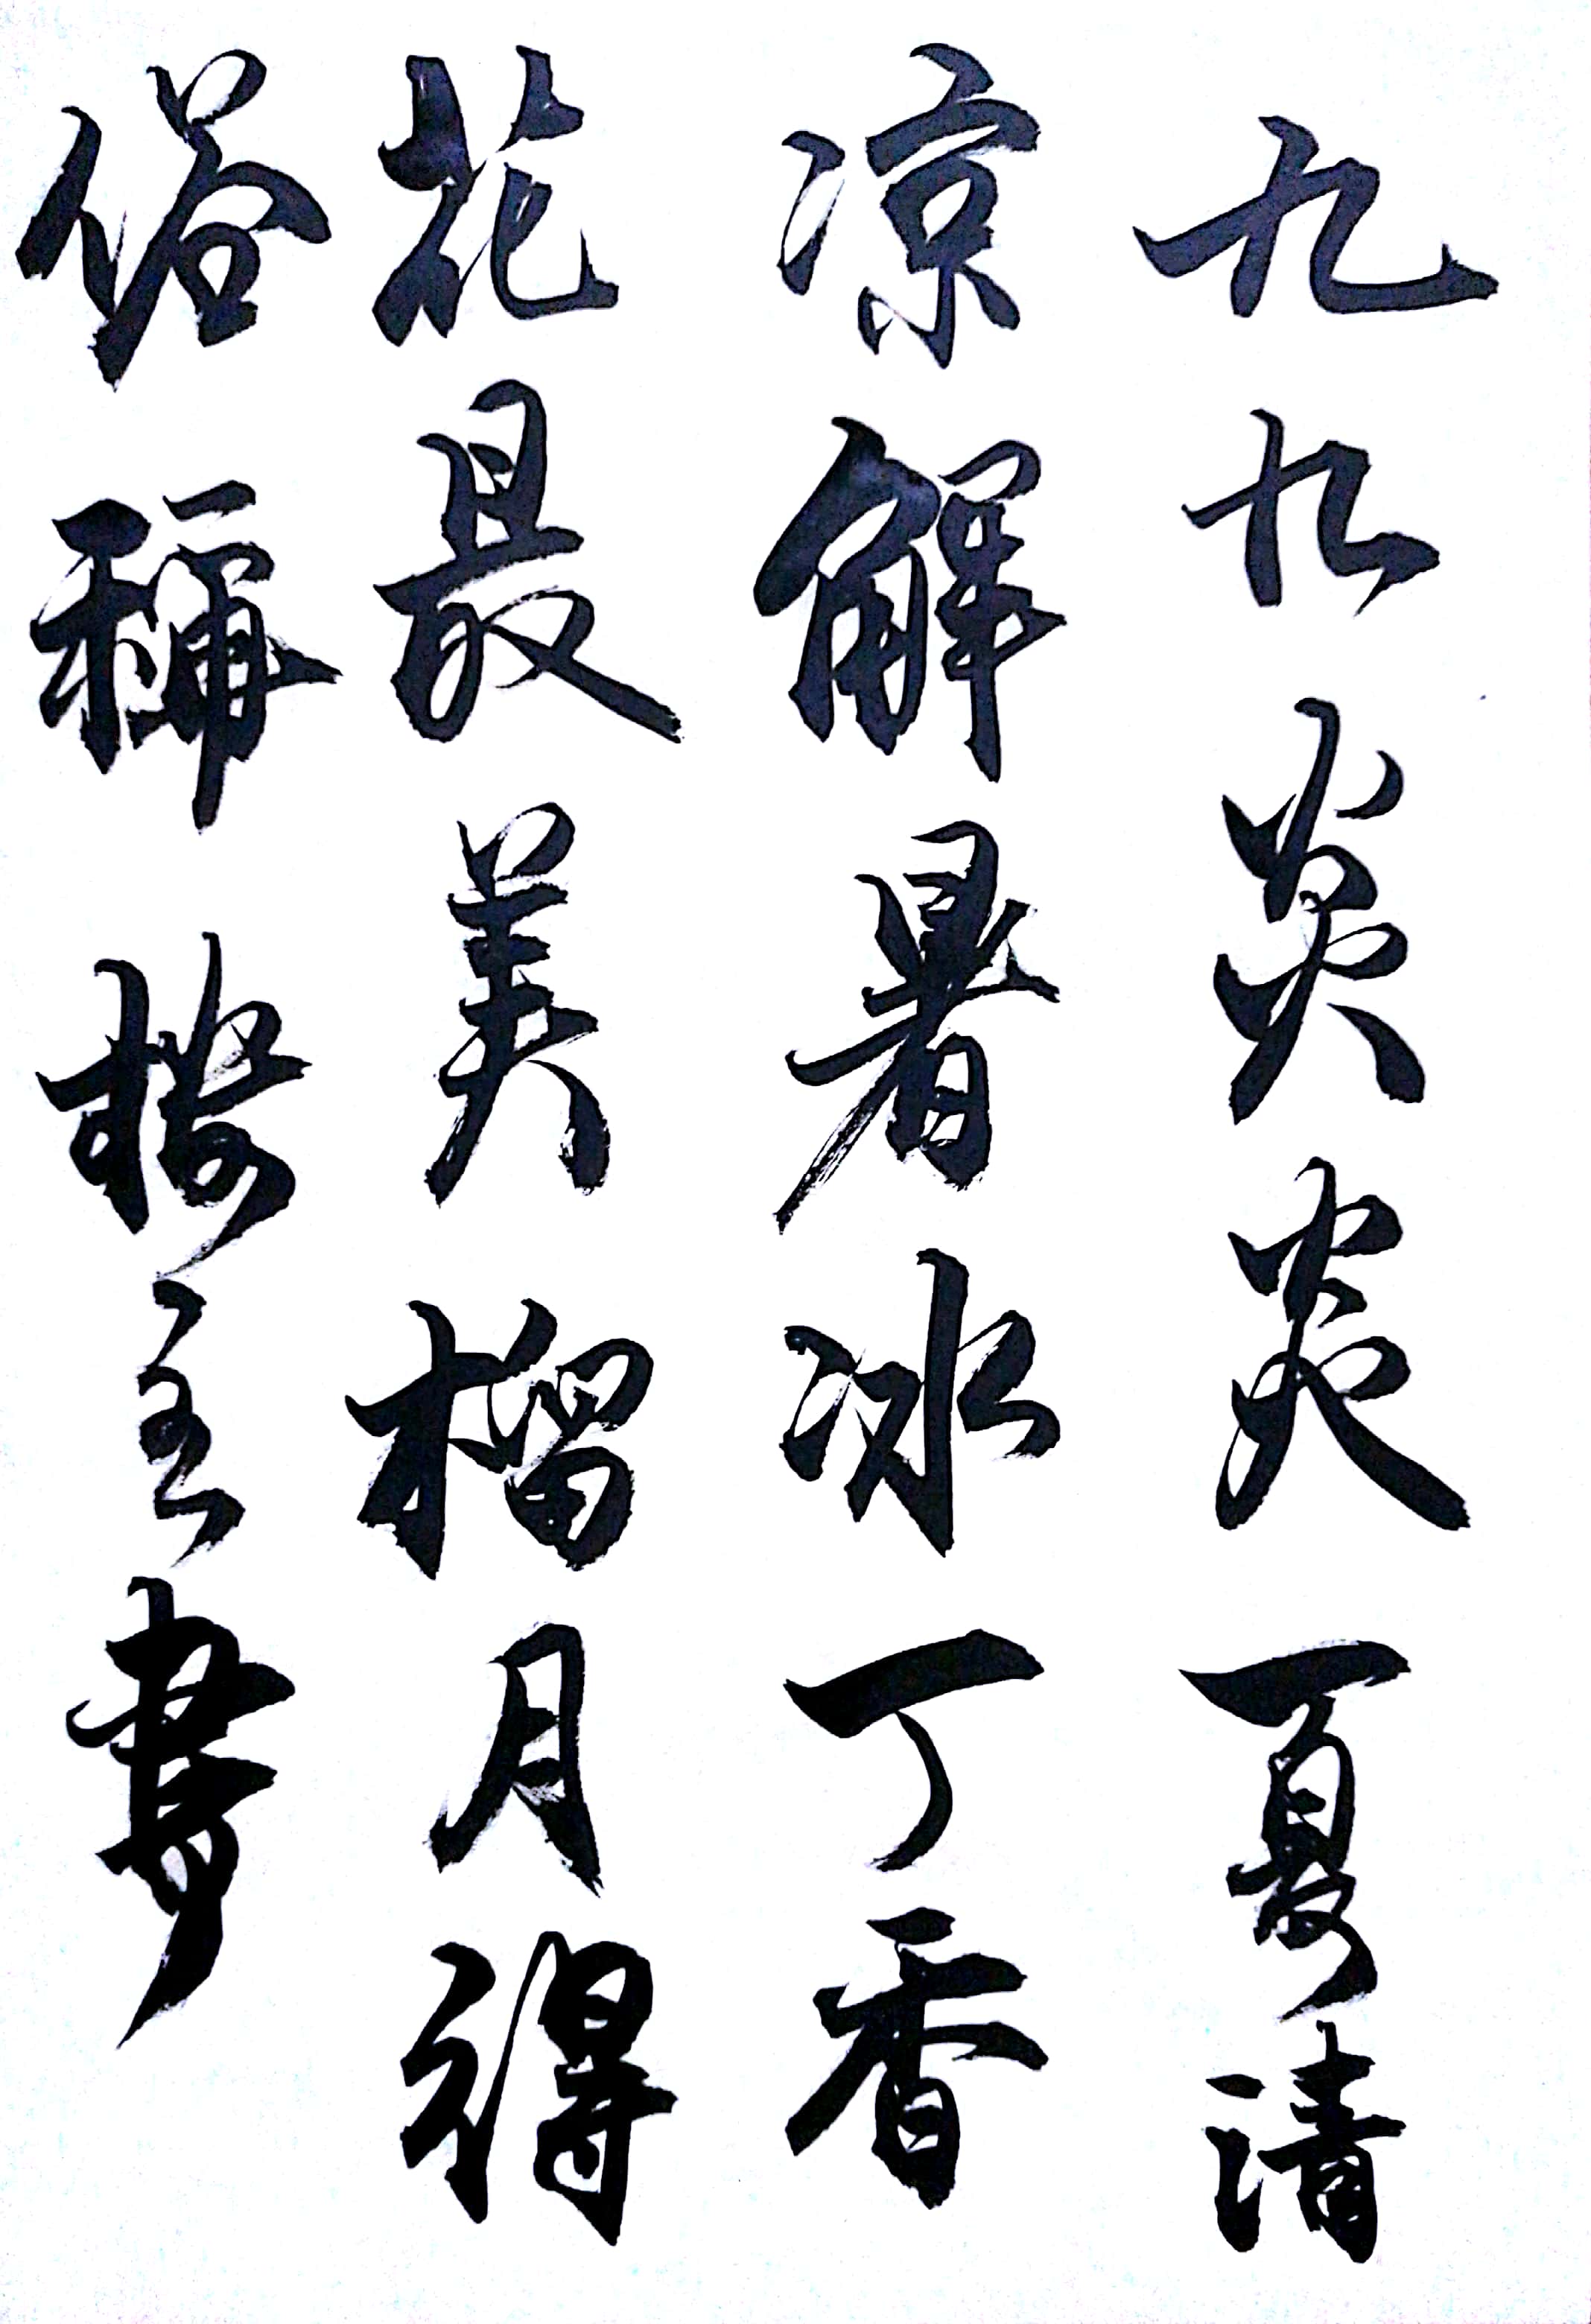 九九炎炎夏清
凉解暑冰丁香
花最美榴月得
俗稱楼主書